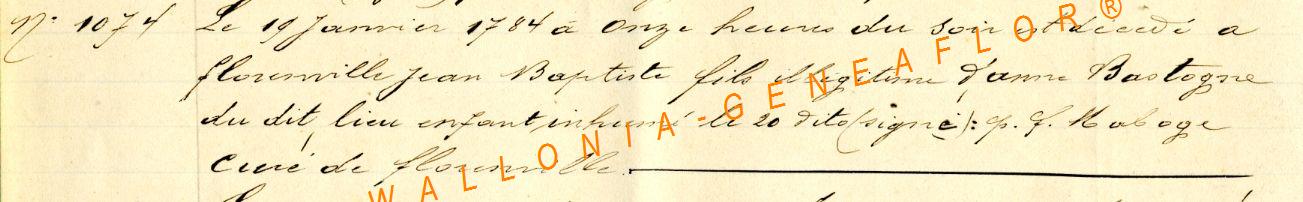 N° 1074 Le 19 Janvier 1784 à onze heures du soir est décédé a
florenville Jean Baptiste fils illégitime d'anne Bastogne
du dit lieu enfant inhumé le 20 dito (signé): p. f. Maboge
curé de florenville.
WALLONIA-GENEAFLOR®